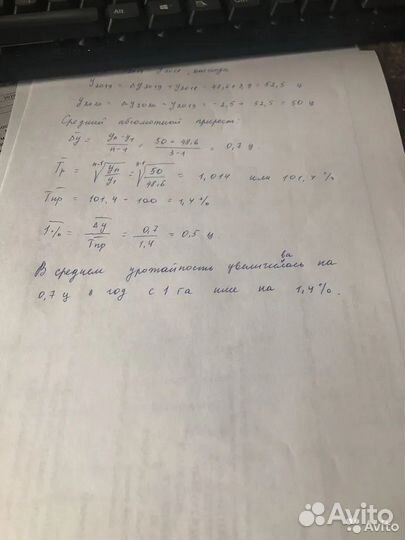 y2018, отсюда
y2019 = Δy2019 + y2018 = 48,6 + 3,9 = 52,5 ц
y2020 = Δy2020 + y2019 = -2,5 + 52,5 = 50 ц
Средний абсолютной прирост:
Δy = yn - y1 / n-1 = 50 + 48.6 / 3-1 = 0,7 ц.
Tp = n-1√yn/y1 = n-1√50/48.6 = 1,014 или 101,4%
Tпр = 101,4 - 100 = 1,4%
1% = Δy / Tпр = 0,7 / 1,4 = 0,5 ц.
В среднем урожайность увеличилась на
0,7 ц в год с 1 га или на 1,4%.
Avito
Avito.ru